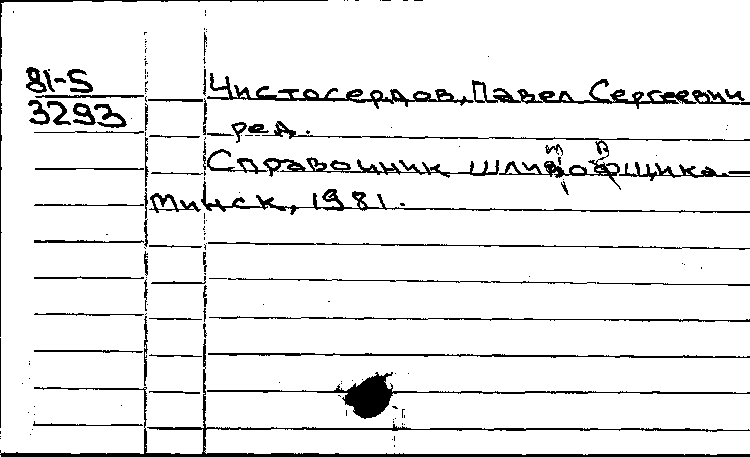 81-5
3293
Чистосердов, Павел Сергеевич
ред.
Справочник шлифовщика. —
Минск, 1981.